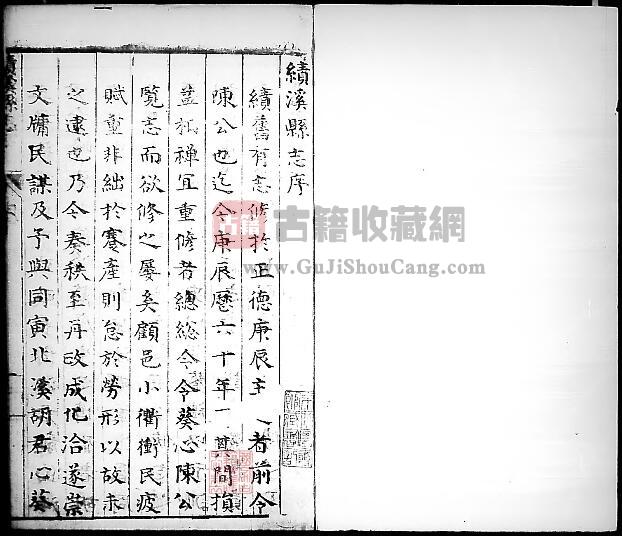 績溪縣志序
績舊有志修於正德庚辰主
者前令
陳公也迄今庚辰曆六十年
間損
益私禪宜重修者總総今令葵心陳公
覧志而欲修之屡矣顧邑小衢衝民疲
賦重非絀於蹇產則怠於勞形以故未
之逮也乃今奏秩至再政成化洽遂崇
文牖民謀及予與同寅北溪胡君心葵
古籍
古籍收藏網
www.GuJiShouCang.com